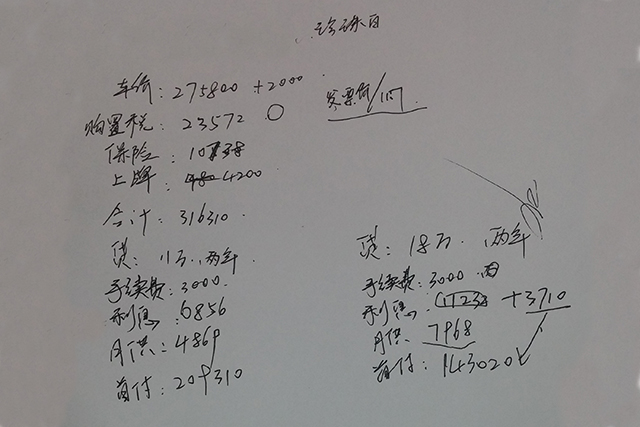 珍珠白
车价: 275800 +2000
发票价/1.17
购置税: 23572
保险: 10738
上牌: 4200
合计: 316310
贷: 11万 两年
手续费: 3000
利息: 6856
月供: 4869
首付: 209310
贷: 18万 两年
手续费: 3000
利息: 11238 +3710
月供: 7968
首付: 143020